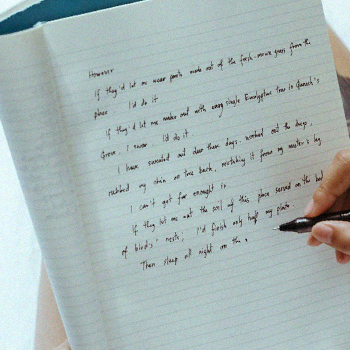 However
If they'd let me wear pants made out of the fresh-mown grass from the
place I'd do it.
If they'd let me make out with every single Eucalyptus tree in Queech's
Grove, I swear I'd do it.
I have sweated out dew them days, worked out the dregs,
rubbed my chin on tree bark, mistaking it for my master's leg.
I can't get far enough in.
If they let me eat the soil of this place served on the bed
of birds' nests, I'd finish only half my plate
Then sleep all night on the